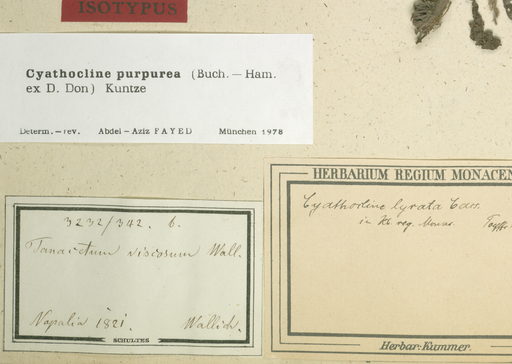 ISOTYPUS
Cyathocline purpurea (Buch. – Ham.
ex D. Don) Kuntze
Determ. – rev. Abdel – Aziz FAYED München 1978
HERBARIUM REGIUM MONACEN
Cyathocline lyrata Cass.
in Hb reg. Monac.
3232/342. b.
Tanacetum viscosum Wall.
Napalia 1821. Wallich.
SCHULTES
Herbar. Kummer.